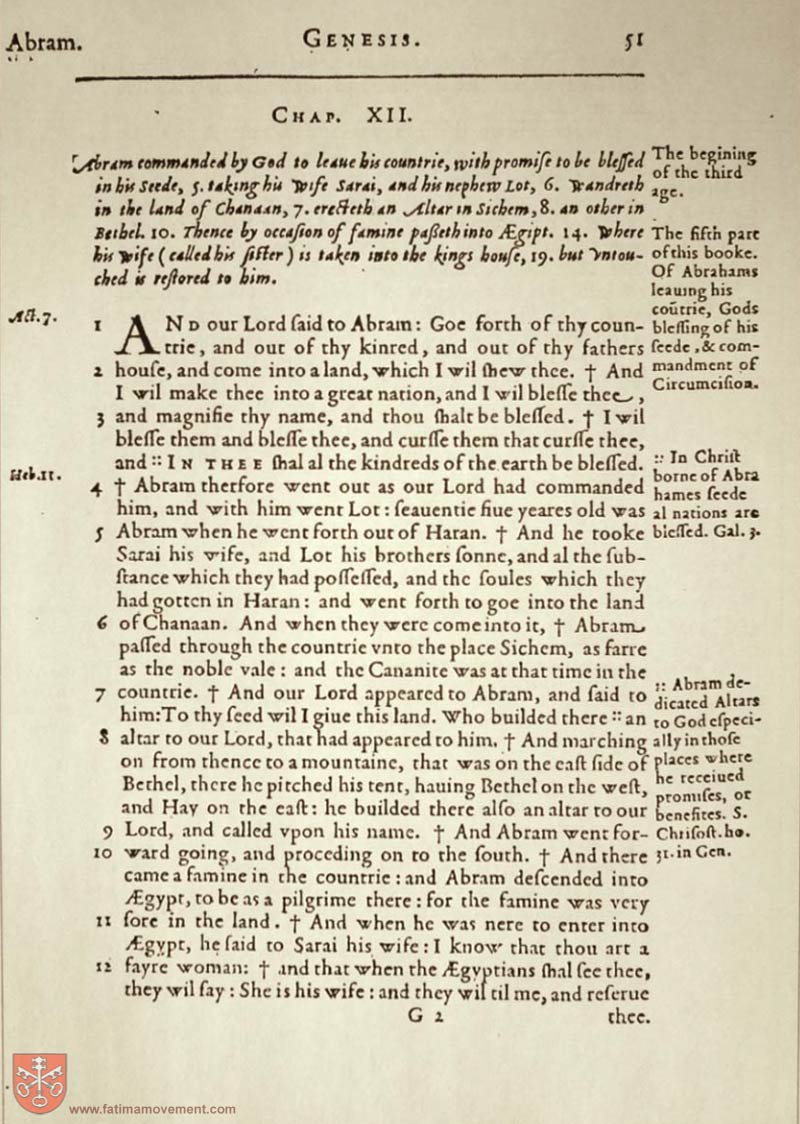 Abram.
GENESIS.
51
CHAP. XII.
Abram commanded by God to leaue his countrie, with promiſe to be bleſſed
in his Seede, 5. taking his Wife Sarai, and his nephew Lot, 6. Wandreth
in the land of Chanaan, 7. erecteth an Altar in Sichem, 8. an other in
Bethel. 10. Thence by occaſion of famine paßeth into Ægipt. 14. Where
his Wife (called his ſiſter) is taken into the kings houſe, 19. but Vntou-
ched is reſtored to him.
The begining
of the third
age.
The fifth part
of this booke.
Of Abrahams
leauing his
coũtrie, Gods
bleſſing of his
ſeede, & com-
mandment of
Circumciſion.
Act. 7.
1 AND our Lord ſaid to Abram: Goe forth of thy coun-
trie, and out of thy kinred, and out of thy fathers
2 houſe, and come into a land, which I wil ſhew thee. † And
I wil make thee into a great nation, and I wil bleſſe thee,
3 and magnifie thy name, and thou ſhalt be bleſſed. † I wil
bleſſe them and bleſſe thee, and curſſe them that curſſe thee,
and :: IN THEE ſhal al the kindreds of the earth be bleſſed.
Heb. 11.
4 † Abram therfore went out as our Lord had commanded
him, and with him went Lot: ſeauentie fiue yeares old was
5 Abram when he went forth out of Haran. † And he tooke
Sarai his wife, and Lot his brothers ſonne, and al the ſub-
ſtance which they had poſſeſſed, and the ſoules which they
had gotten in Haran: and went forth to goe into the land
6 of Chanaan. And when they were come into it, † Abram
paſſed through the countrie vnto the place Sichem, as farre
as the noble vale: and the Cananite was at that time in the
7 countrie. † And our Lord appeared to Abram, and ſaid to
him: To thy ſeed wil I giue this land. Who builded there :: an
8 altar to our Lord, that had appeared to him. † And marching
on from thence to a mountaine, that was on the eaſt ſide of
Bethel, there he pitched his tent, hauing Bethel on the weſt,
and Hay on the eaſt: he builded there alſo an altar to our
9 Lord, and called vpon his name. † And Abram went for-
10 ward going, and proceding on to the ſouth. † And there
came a famine in the countrie: and Abram deſcended into
Ægypt, to be as a pilgrime there: for the famine was very
11 ſore in the land. † And when he was nere to enter into
Ægypt, he ſaid to Sarai his wife: I know that thou art a
12 fayre woman: † and that when the Ægyptians ſhal ſee thee,
they wil ſay: She is his wife: and they wil til me, and reſerue
G 2
thee.
:: In Chriſt
borne of Abra
hames ſeede
al nations are
bleſſed. Gal. 3.
:: Abram de-
dicated Altars
to God eſpeci-
ally in thoſe
places where
he receiued
promiſes, or
benefites. S.
Chriſoſt. ho.
31. in Gen.
www.fatimamovement.com